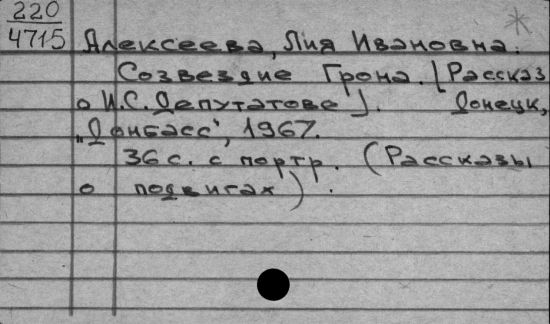 220
4715
*
Алексеева, Лия Ивановна.
Созвездие Грона. [Рассказ
о И.С. Депутатове]. Донецк,
„Донбасс“, 1967.
36 с. с портр. (Рассказы
о подвигах).